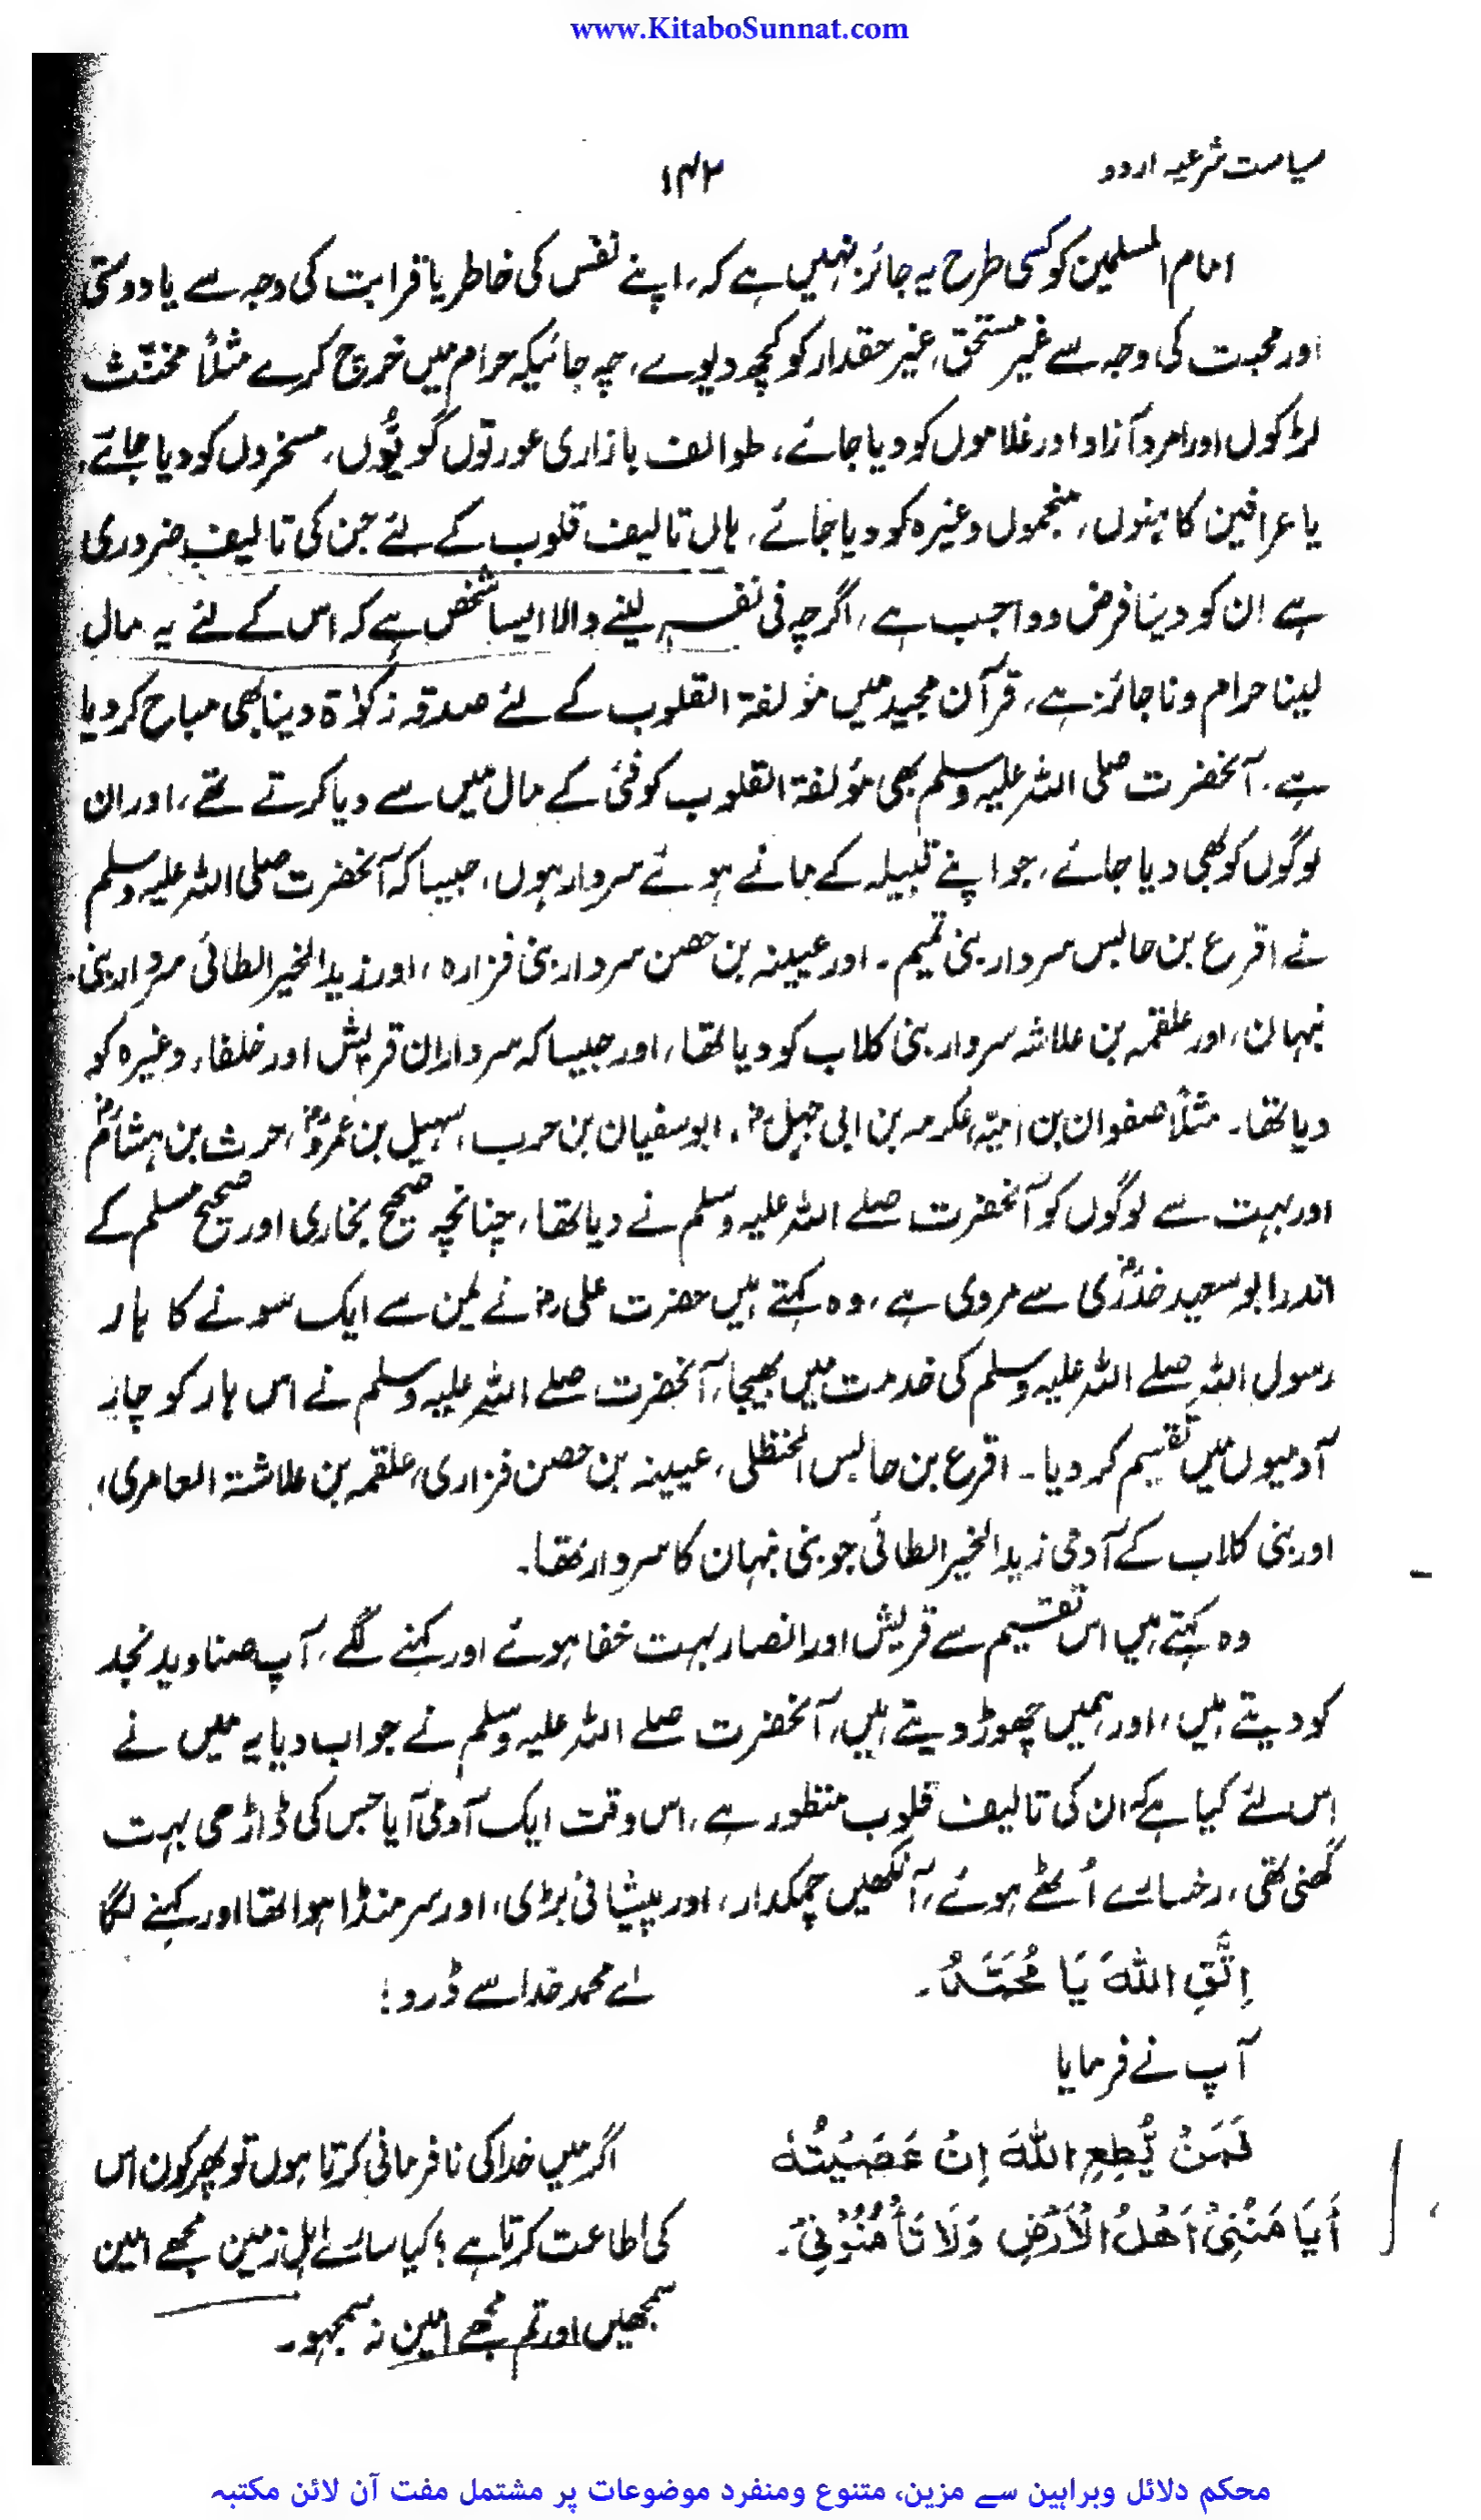 www.KitaboSunnat.com
سیاست شرعیہ اردو
۱۴۲
امام المسلمین کو کسی طرح یہ جائز نہیں ہے کہ، اپنے نفس کی خاطر یا قرابت کی وجہ سے یا دوستی
اور محبت کی وجہ سے غیر مستحق، غیر حقدار کو کچھ دیوے، چہ جائیکہ حرام میں خرچ کرے مثلاً مخنّث
لڑکوں اور امرد آزاد اور غلاموں کو دیا جائے، طوائف بازاری عورتوں گویّوں، مسخروں کو دیا جائے،
یا عرافین کاہنوں، منجموں وغیرہ کو دیا جائے، ہاں تالیف قلوب کے لئے جن کی تالیف ضروری
ہے ان کو دینا فرض و واجب ہے، اگرچہ فی نفسہٖ لینے والا ایسا شخص ہے کہ اس کے لئے یہ مال
لینا حرام و ناجائز ہے، قرآن مجید میں مؤلفۃ القلوب کے لئے صدقہ زکوٰۃ دینا بھی مباح کر دیا
ہے، آنحضرت صلی اللہ علیہ وسلم بھی مؤلفۃ القلوب کو فئ کے مال میں سے دیا کرتے تھے، اور ان
لوگوں کو بھی دیا جائے، جو اپنے قبیلہ کے مانے ہوئے سردار ہوں، جیسا کہ آنحضرت صلی اللہ علیہ وسلم
نے اقرع بن حابس سردار بنی تمیم۔ اور عیینہ بن حصن سردار بنی فزارہ، اور زید الخیر الطائی سردار بنی
نبہان، اور علقمہ بن علاثہ سردار بنی کلاب کو دیا تھا، اور جیسا کہ سرداران قریش اور خلفاء وغیرہ کو
دیا تھا۔ مثلاً صفوان بن امیّہ، عکرمہ بن ابی جہلؓ، ابو سفیان بن حرب، سہیل بن عمروؓ، حرث بن ہشامؓ
اور بہت سے لوگوں کو آنحضرت صلے اللہ علیہ وسلم نے دیا تھا، چنانچہ صحیح بخاری اور صحیح مسلم کے
اندر ابو سعید خدریؓ سے مروی ہے، وہ کہتے ہیں حضرت علیؓ نے یمن سے ایک سونے کا ہار
رسول اللہ صلے اللہ علیہ وسلم کی خدمت میں بھیجا، آنحضرت صلے اللہ علیہ وسلم نے اس ہار کو چار
آدمیوں میں تقسیم کر دیا۔ اقرع بن حابس الحنظلی، عیینہ بن حصن فزاری، علقمہ بن علاثۃ العامری،
اور بنی کلاب کے آدمی زید الخیر الطائی جو بنی نبہان کا سردار تھا۔
وہ کہتے ہیں اس تقسیم سے قریش اور انصار بہت خفا ہوئے اور کہنے لگے، آپ صنادید نجد
کو دیتے ہیں، اور ہمیں چھوڑ دیتے ہیں، آنحضرت صلے اللہ علیہ وسلم نے جواب دیا یہ میں نے
اس لئے کیا ہے کہ ان کی تالیف قلوب منظور ہے، اس وقت ایک آدمی آیا جس کی ڈاڑھی بہت
گھنی تھی، رخسارے اُٹھے ہوئے، آنکھیں چمکدار، اور پیشانی بڑی، اور سر منڈا ہوا تھا اور کہنے لگا
اِتَّقِ اللهَ يَا مُحَمَّدُ۔
اے محمد خدا سے ڈرو!
آپ نے فرمایا
فَمَنْ يُّطِعِ اللهَ اِنْ عَصَيْتُهٗ
اَيَاْمَنُنِىْ اَهْلُ الْاَرْضِ وَلَا تَأْمَنُوْنِىْ۔
اگر میں خدا کی نافرمانی کرتا ہوں تو پھر کون اس
کی اطاعت کرتا ہے؟ کیا سارے اہل زمین مجھے امین
سمجھیں اور تم مجھے امین نہ سمجھو۔
محکم دلائل وبراہین سے مزین، متنوع ومنفرد موضوعات پر مشتمل مفت آن لائن مکتبہ